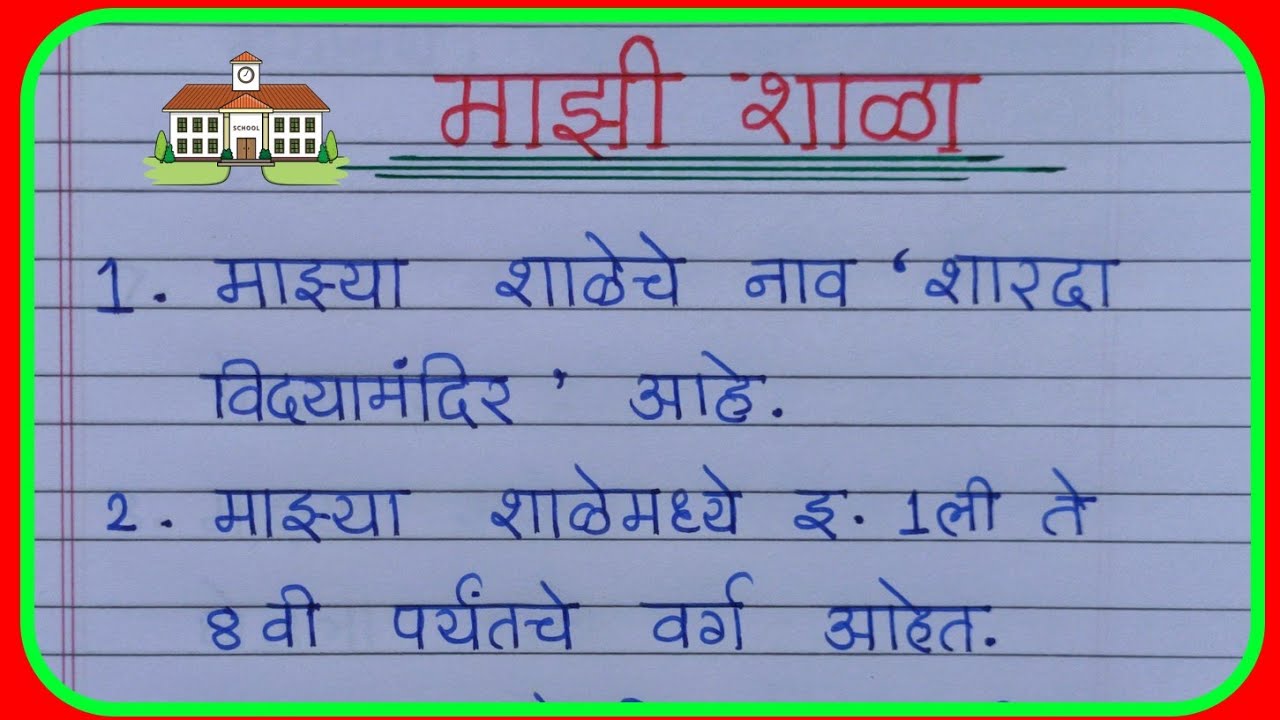 SCHOOL
माझी शाळा
1. माझ्या शाळेचे नाव ‘शारदा
विदयामंदिर’ आहे.
2. माझ्या शाळेमध्ये इ. 1ली ते
8वी पर्यंतचे वर्ग आहेत.